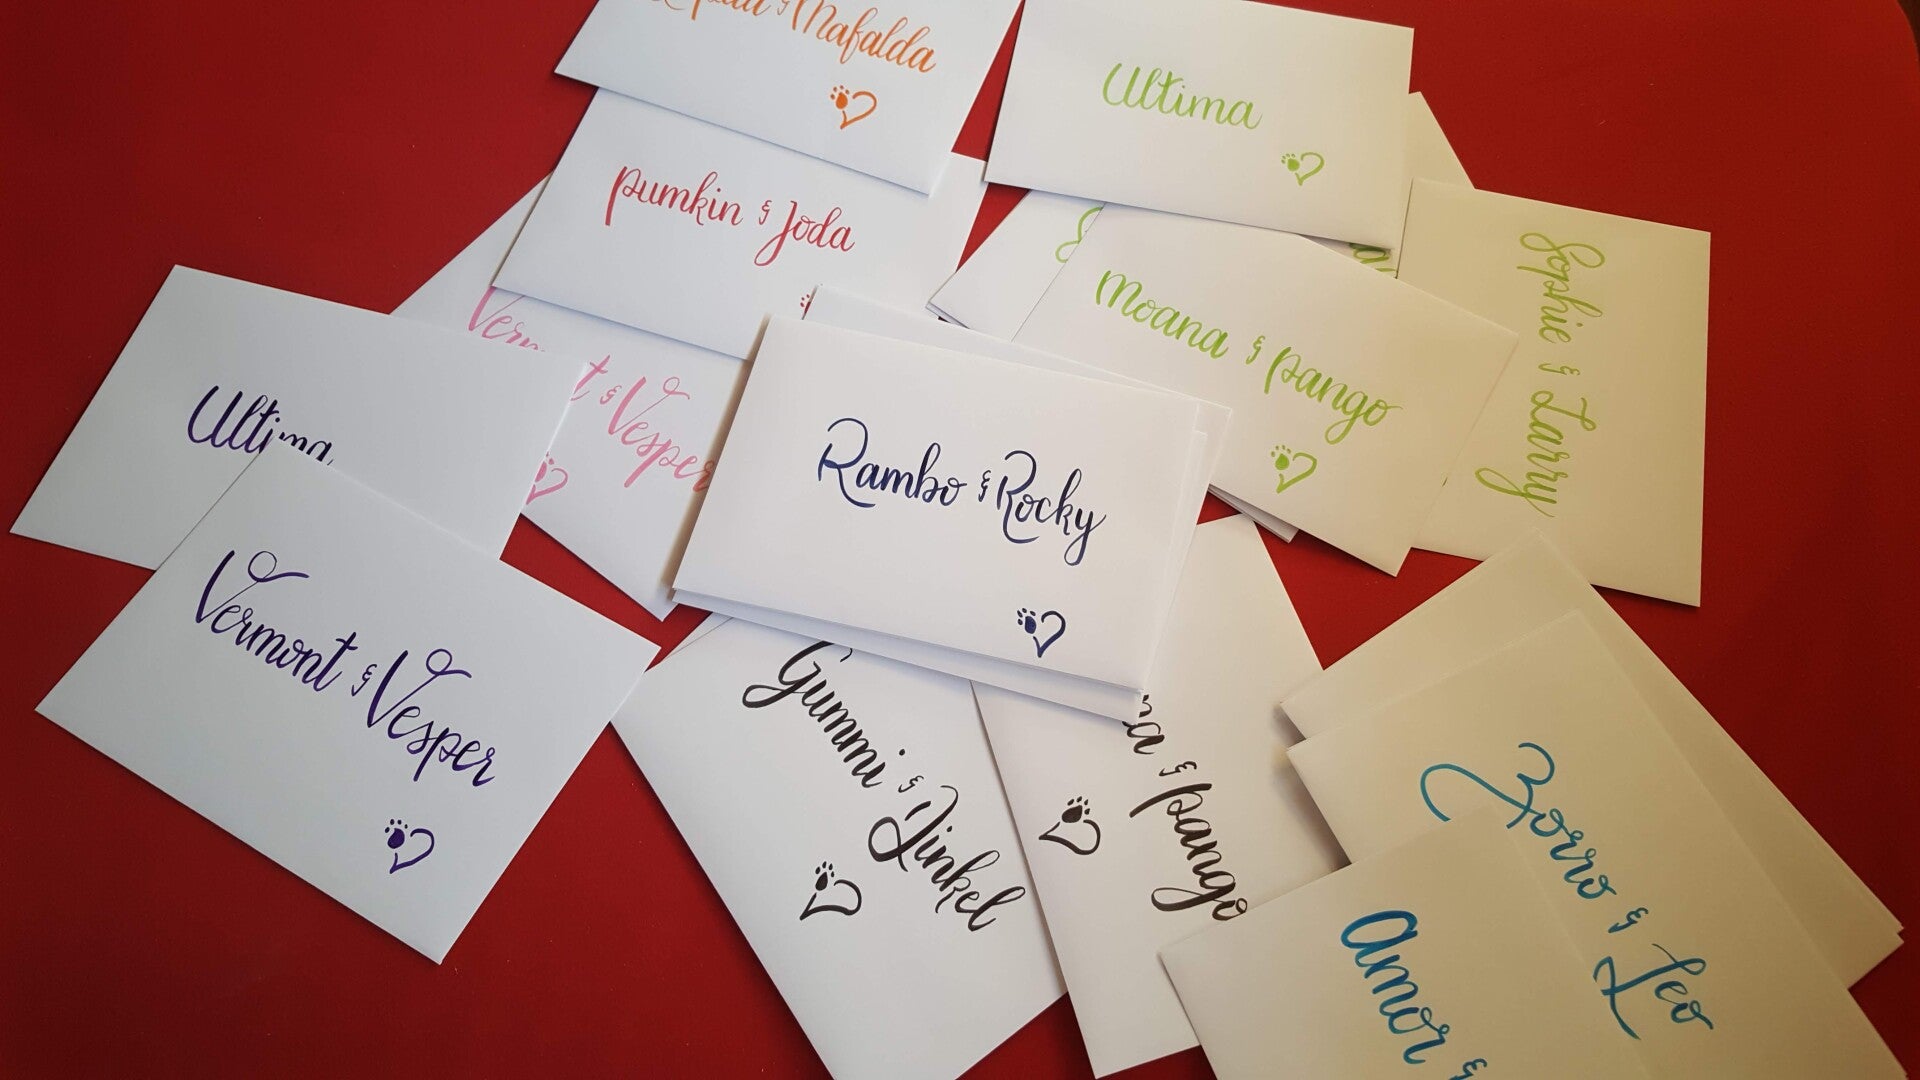 & Mafalda
Ultima
pumkin & Joda
Sophie & Larry
Moana & pango
Vermont & Vesper
Ultima
Rambo & Rocky
Vermont & Vesper
Gummi & Jinkel
& pango
Zorro & Leo
Amor &